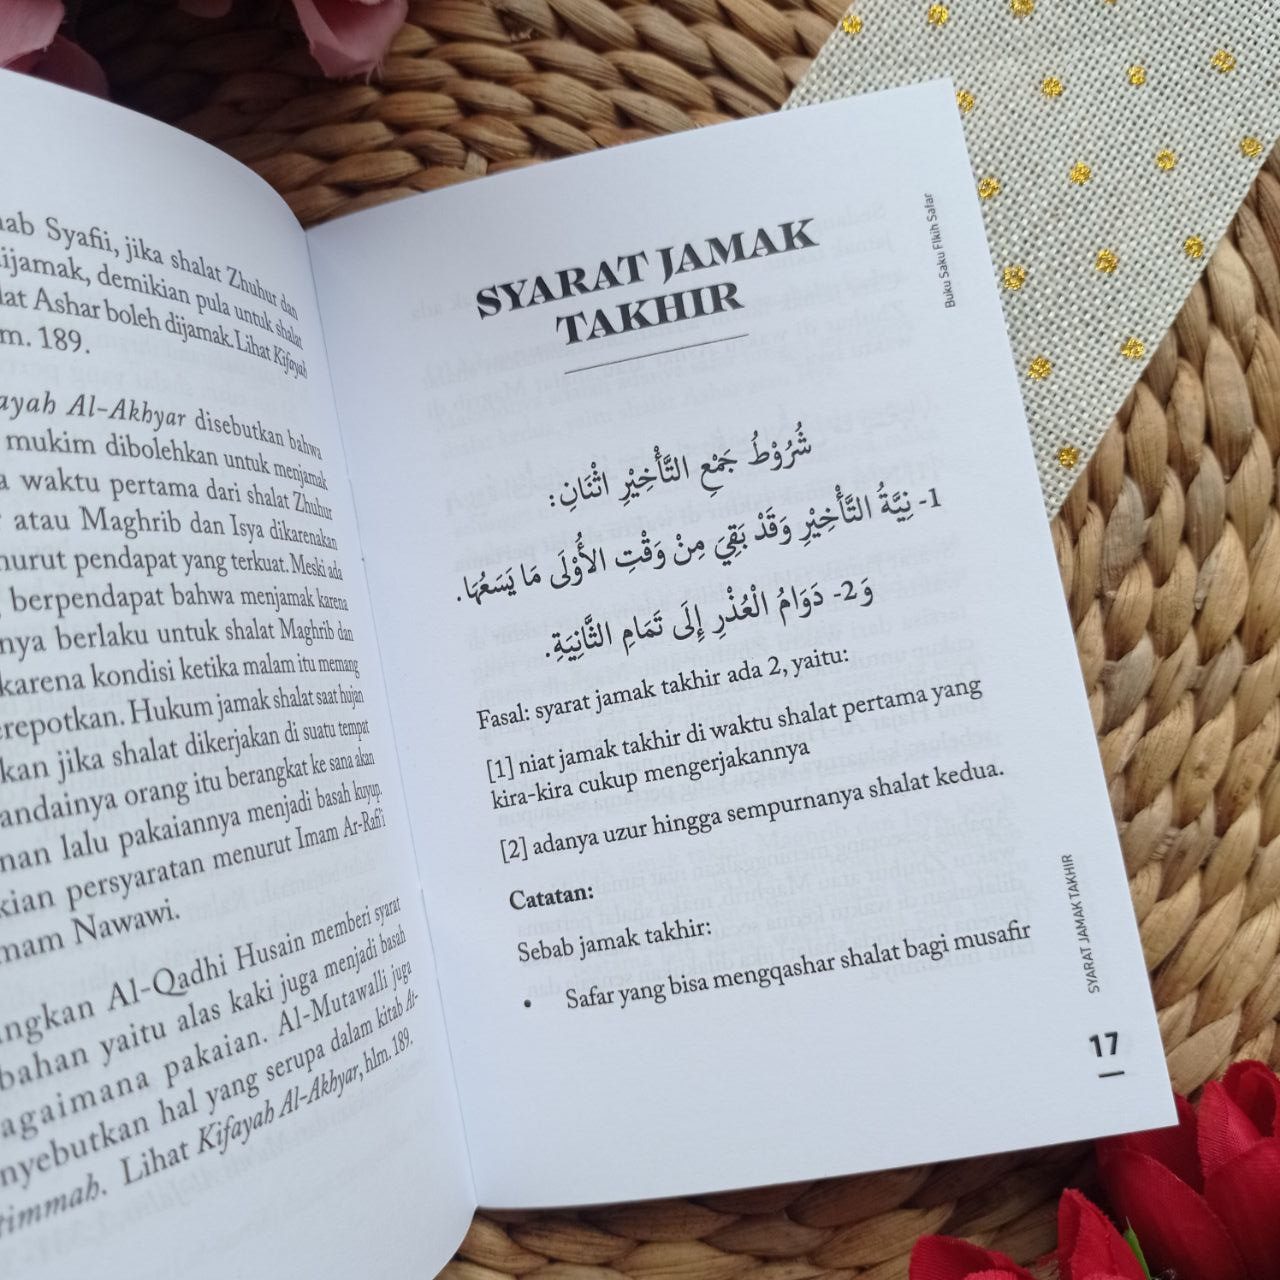 ab Syafii, jika shalat Zhuhur dan
ijamak, demikian pula untuk shalat
lat Ashar boleh dijamak. Lihat Kifayah
m. 189.
ayah Al-Akhyar disebutkan bahwa
mukim dibolehkan untuk menjamak
a waktu pertama dari shalat Zhuhur
atau Maghrib dan Isya dikarenakan
nurut pendapat yang terkuat. Meski ada
berpendapat bahwa menjamak karena
nya berlaku untuk shalat Maghrib dan
karena kondisi ketika malam itu memang
erepotkan. Hukum jamak shalat saat hujan
kan jika shalat dikerjakan di suatu tempat
andainya orang itu berangkat ke sana akan
nan lalu pakaiannya menjadi basah kuyup.
kian persyaratan menurut Imam Ar-Rafi'i
mam Nawawi.
angkan Al-Qadhi Husain memberi syarat
bahan yaitu alas kaki juga menjadi basah
agaimana pakaian. Al-Mutawalli juga
nyebutkan hal yang serupa dalam kitab At-
timmah. Lihat Kifayah Al-Akhyar, hlm. 189.
Buku Saku FIkih Safar
SYARAT JAMAK
TAKHIR
شُرُوْطُ جَمْعِ التَّأْخِيْرِ اثْنَانِ:
1- نِيَّةُ التَّأْخِيْرِ وَقَدْ بَقِيَ مِنْ وَقْتِ الأُوْلَى مَا يَسَعُهَا.
وَ2- دَوَامُ الْعُذْرِ إِلَى تَمَامِ الثَّانِيَةِ.
Fasal: syarat jamak takhir ada 2, yaitu:
[1] niat jamak takhir di waktu shalat pertama yang
kira-kira cukup mengerjakannya
[2] adanya uzur hingga sempurnanya shalat kedua.
Catatan:
Sebab jamak takhir:
• Safar yang bisa mengqashar shalat bagi musafir
SYARAT JAMAK TAKHIR
17